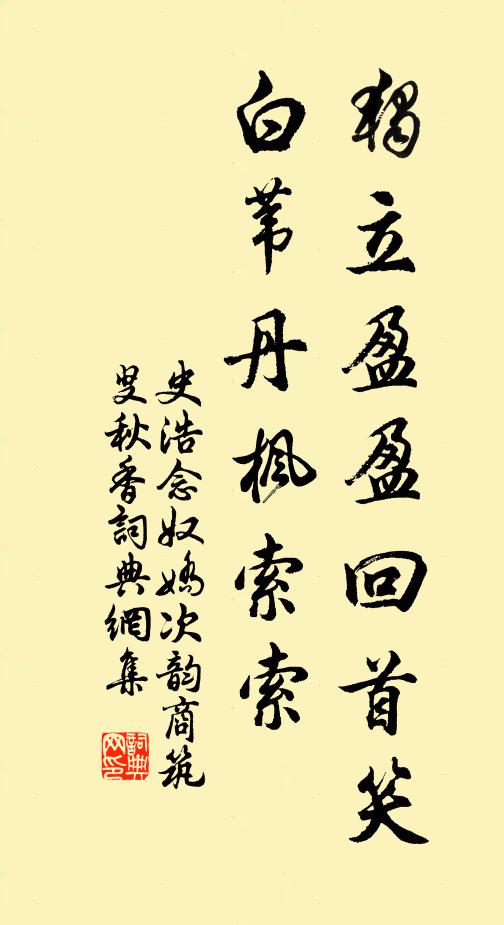 獨立盈盈回首笑
白苇丹楓索索
史浩念奴嬌次韵商筑
叟秋香詞典網集
詞典网印